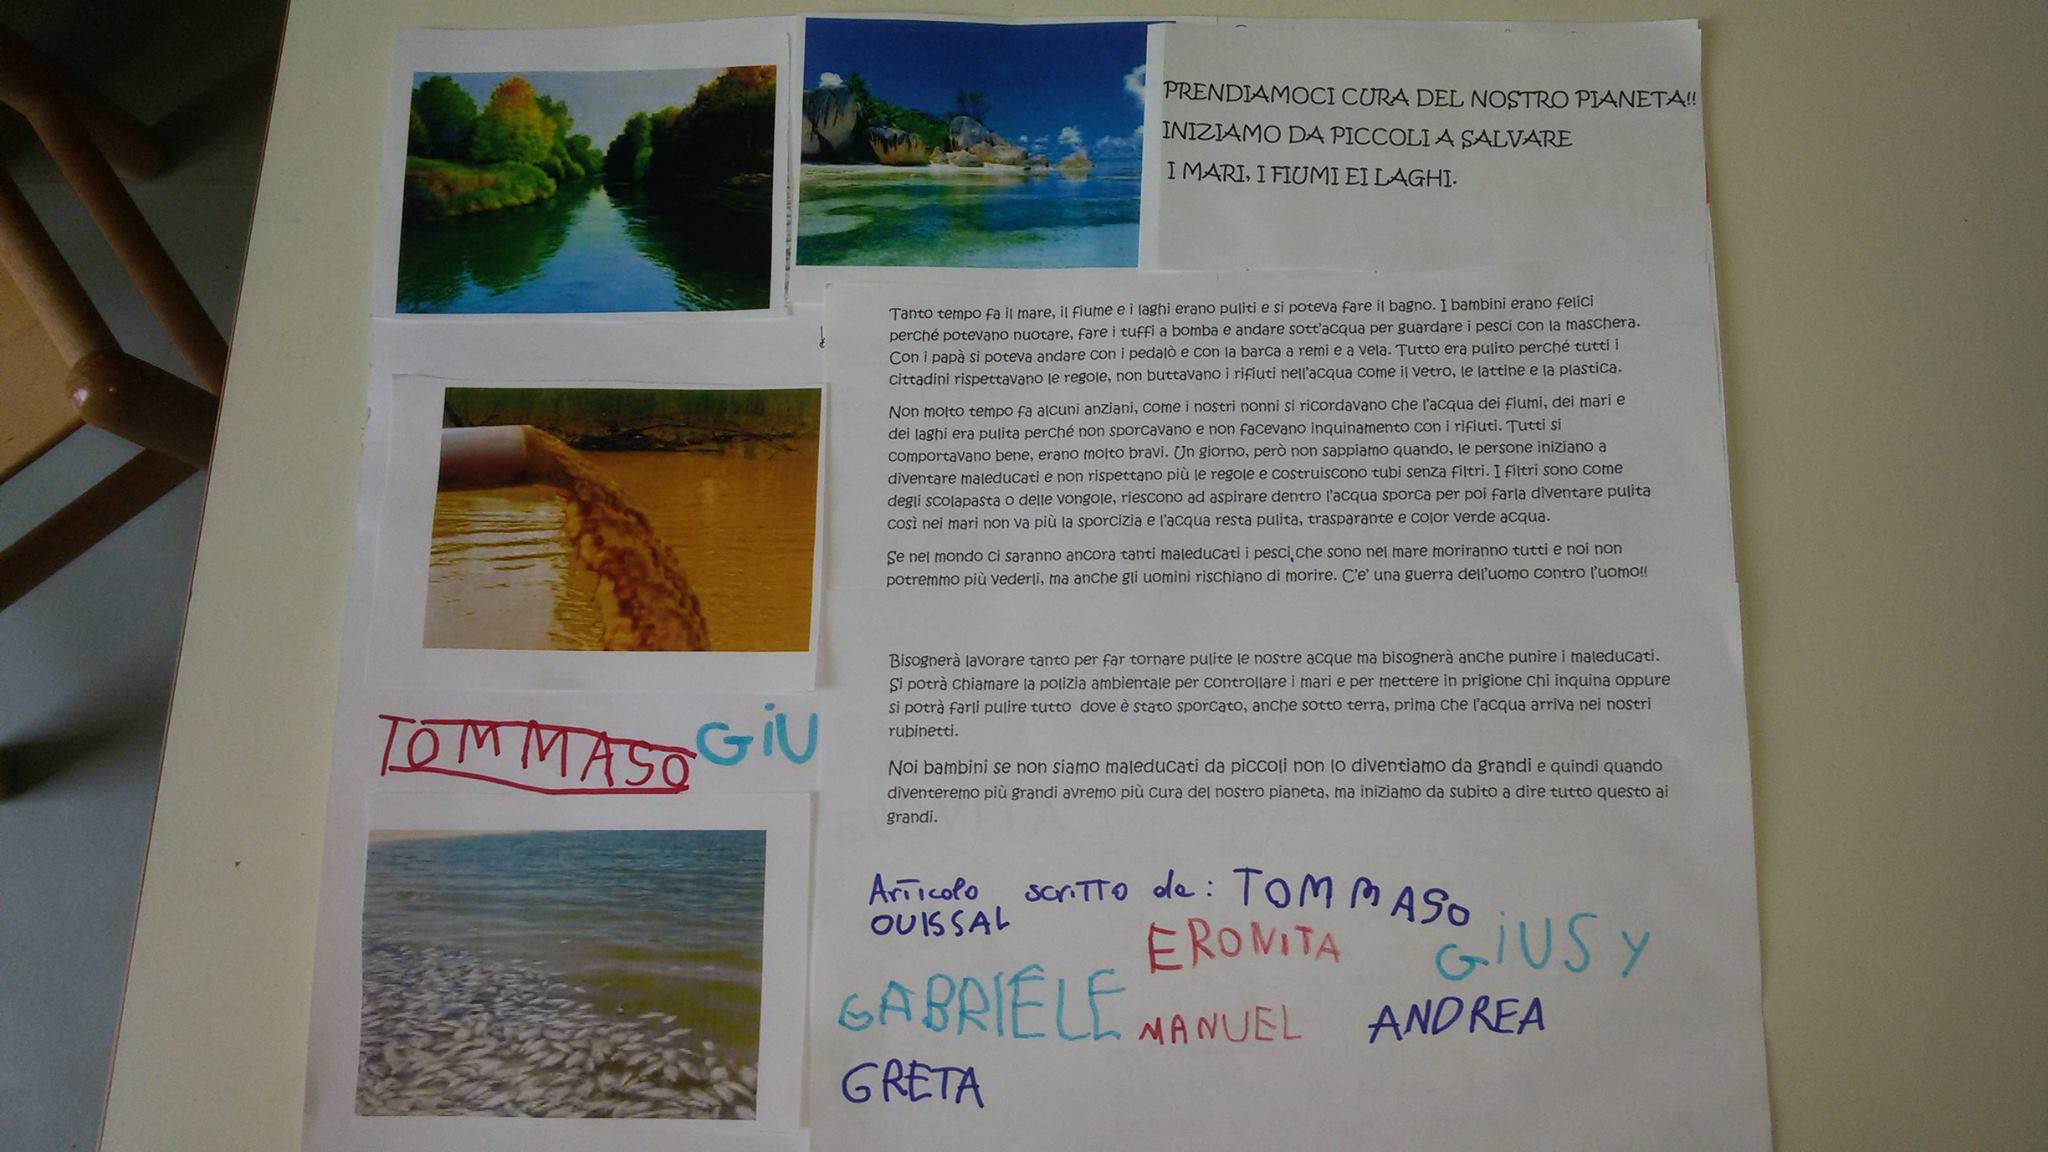 PRENDIAMOCI CURA DEL NOSTRO PIANETA!!
INIZIAMO DA PICCOLI A SALVARE
I MARI, I FIUMI EI LAGHI.
Tanto tempo fa il mare, il fiume e i laghi erano puliti e si poteva fare il bagno. I bambini erano felici
perché potevano nuotare, fare i tuffi a bomba e andare sott'acqua per guardare i pesci con la maschera.
Con i papà si poteva andare con i pedalò e con la barca a remi e a vela. Tutto era pulito perché tutti i
cittadini rispettavano le regole, non buttavano i rifiuti nell'acqua come il vetro, le lattine e la plastica.
Non molto tempo fa alcuni anziani, come i nostri nonni si ricordavano che l'acqua dei fiumi, dei mari e
dei laghi era pulita perché non sporcavano e non facevano inquinamento con i rifiuti. Tutti si
comportavano bene, erano molto bravi. Un giorno, però non sappiamo quando, le persone iniziano a
diventare maleducati e non rispettano più le regole e costruiscono tubi senza filtri. I filtri sono come
degli scolapasta o delle vongole, riescono ad aspirare dentro l'acqua sporca per poi farla diventare pulita
così nei mari non va più la sporcizia e l'acqua resta pulita, trasparante e color verde acqua.
Se nel mondo ci saranno ancora tanti maleducati i pesci, che sono nel mare moriranno tutti e noi non
potremmo più vederli, ma anche gli uomini rischiano di morire. C'e' una guerra dell'uomo contro l'uomo!!
Bisognerà lavorare tanto per far tornare pulite le nostre acque ma bisognerà anche punire i maleducati.
Si potrà chiamare la polizia ambientale per controllare i mari e per mettere in prigione chi inquina oppure
si potrà farli pulire tutto dove è stato sporcato, anche sotto terra, prima che l'acqua arriva nei nostri
rubinetti.
Noi bambini se non siamo maleducati da piccoli non lo diventiamo da grandi e quindi quando
diventeremo più grandi avremo più cura del nostro pianeta, ma iniziamo da subito a dire tutto questo ai
grandi.
TOMMASO GIU
Articolo scritto da: TOMMASO
OUISSAL
ERONITA GIUSY
GABRIELE MANUEL ANDREA
GRETA